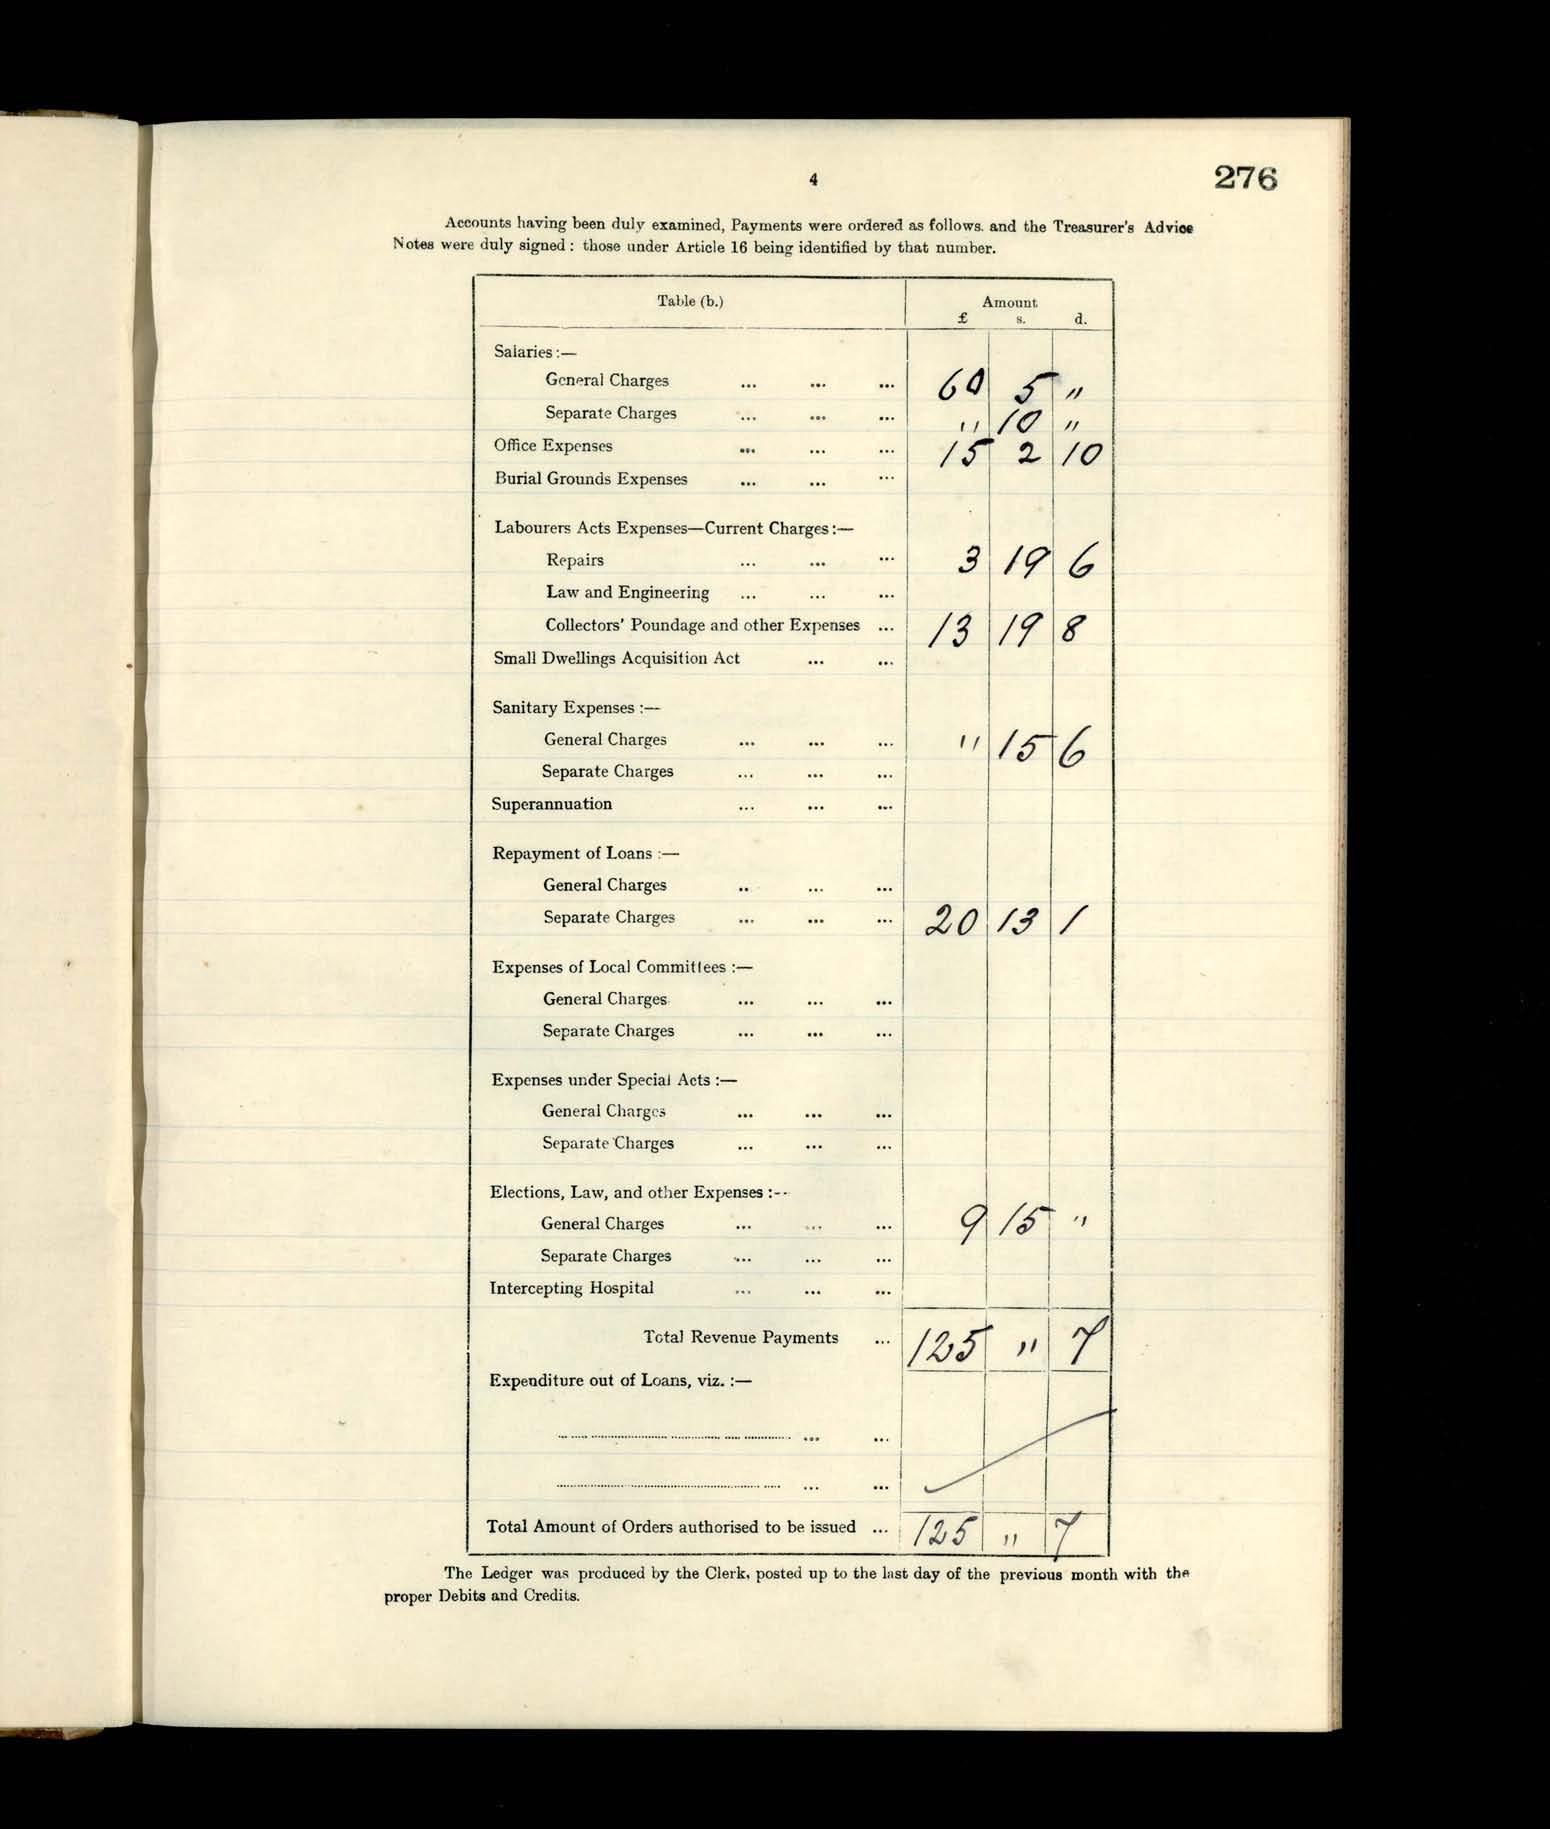 4
276
Accounts having been duly examined, Payments were ordered as follows. and the Treasurer's Advice
Notes were duly signed : those under Article 16 being identified by that number.
Table (b.) Amount
£ s. d.
Salaries :—
General Charges ... ... ... 60 5 "
Separate Charges ... ... ... " 10 "
Office Expenses ... ... ... 15 2 10
Burial Grounds Expenses ... ... ...
Labourers Acts Expenses—Current Charges :—
Repairs ... ... ... 3 19 6
Law and Engineering ... ... ...
Collectors' Poundage and other Expenses ... 13 19 8
Small Dwellings Acquisition Act ... ...
Sanitary Expenses :—
General Charges ... ... ... " 15 6
Separate Charges ... ... ...
Superannuation ... ... ...
Repayment of Loans :—
General Charges .. ... ...
Separate Charges ... ... ... 20 13 1
Expenses of Local Committees :—
General Charges ... ... ...
Separate Charges ... ... ...
Expenses under Special Acts :—
General Charges ... ... ...
Separate Charges ... ... ...
Elections, Law, and other Expenses :--
General Charges ... ... ... 9 15 "
Separate Charges ... ... ...
Intercepting Hospital ... ... ...
Total Revenue Payments ... 125 " 7
Expenditure out of Loans, viz. :—
Total Amount of Orders authorised to be issued ... 125 " 7
The Ledger was produced by the Clerk, posted up to the last day of the previous month with the
proper Debits and Credits.